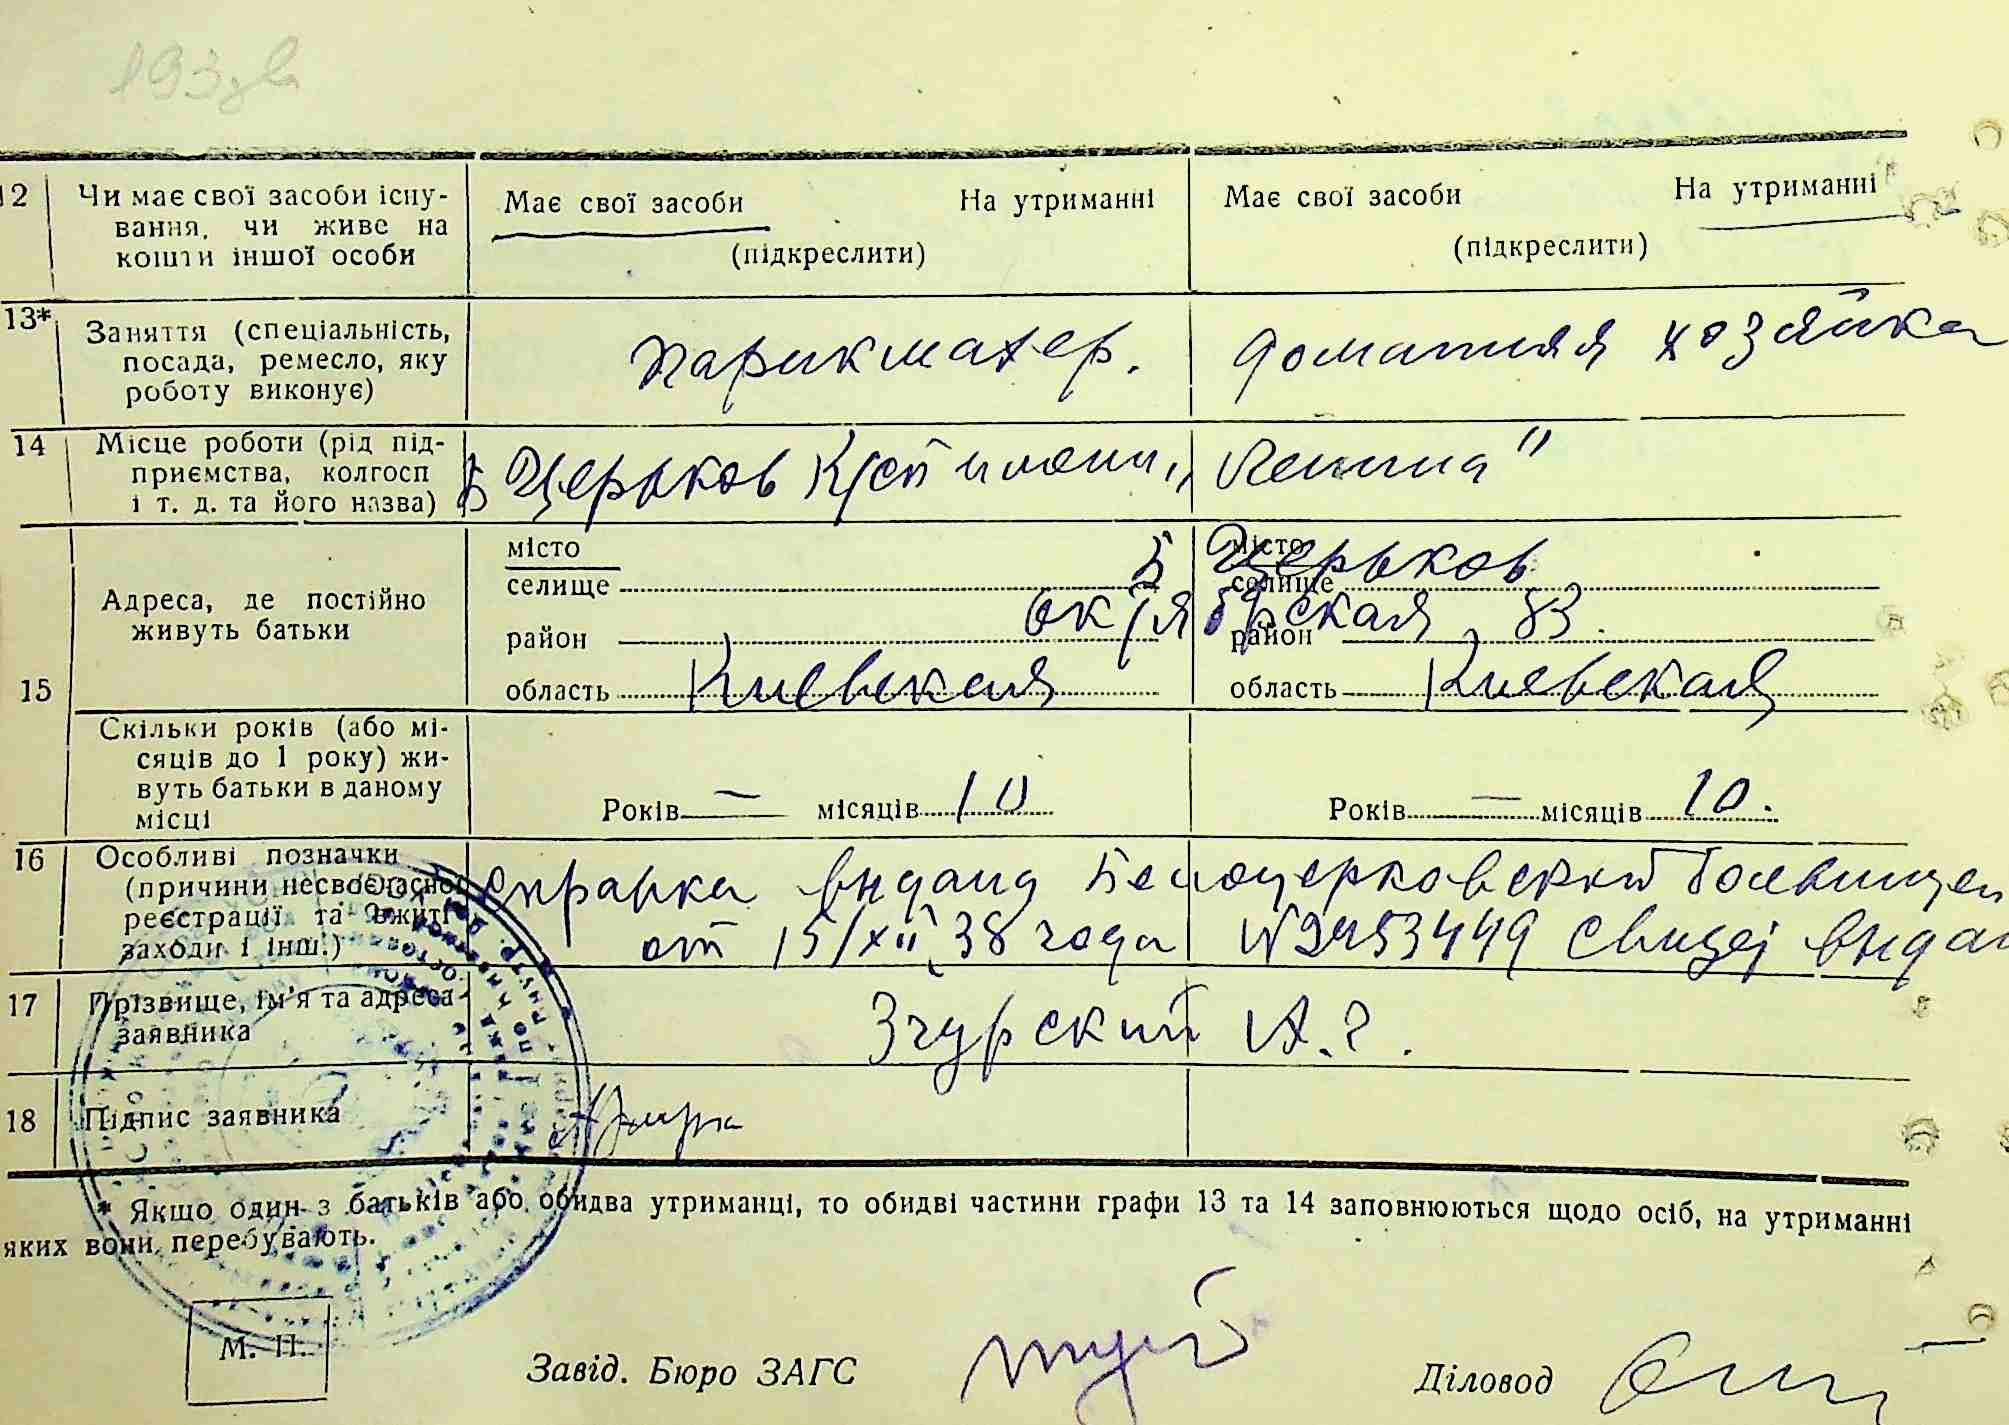 12
Чи має свої засоби існу-
вання, чи живе на
кошти іншої особи
Має свої засоби На утриманні
(підкреслити)
Має свої засоби На утриманні
(підкреслити)
13*
Заняття (спеціальність,
посада, ремесло, яку
роботу виконує)
парикмахер.
домашняя хозяйка
14
Місце роботи (рід під-
приємства, колгосп
і т. д. та його назва)
Б Церьков имени „Ленина"
15
Адреса, де постійно
живуть батьки
місто
селище
район
область Киевская
місто
Б Церьков
селище
октябрьская 83.
район
область Киевская
Скільки років (або мі-
сяців до 1 року) жи-
вуть батьки в даному
місці
Років — місяців 10
Років — місяців 10.
16
Особливі позначки
(причини несвоєчасної
реєстрації та вжиті
заходи і інш.)
справка выдана Белоцерковской
от 15/XII 38 года N 2453449 выдан
17
Прізвище, ім'я та адреса
заявника
Згурский А. Г.
18
Підпис заявника
* Якщо один з батьків або обидва утриманці, то обидві частини графи 13 та 14 заповнюються щодо осіб, на утриманні
яких вони перебувають.
М. П.
Завід. Бюро ЗАГС
Діловод